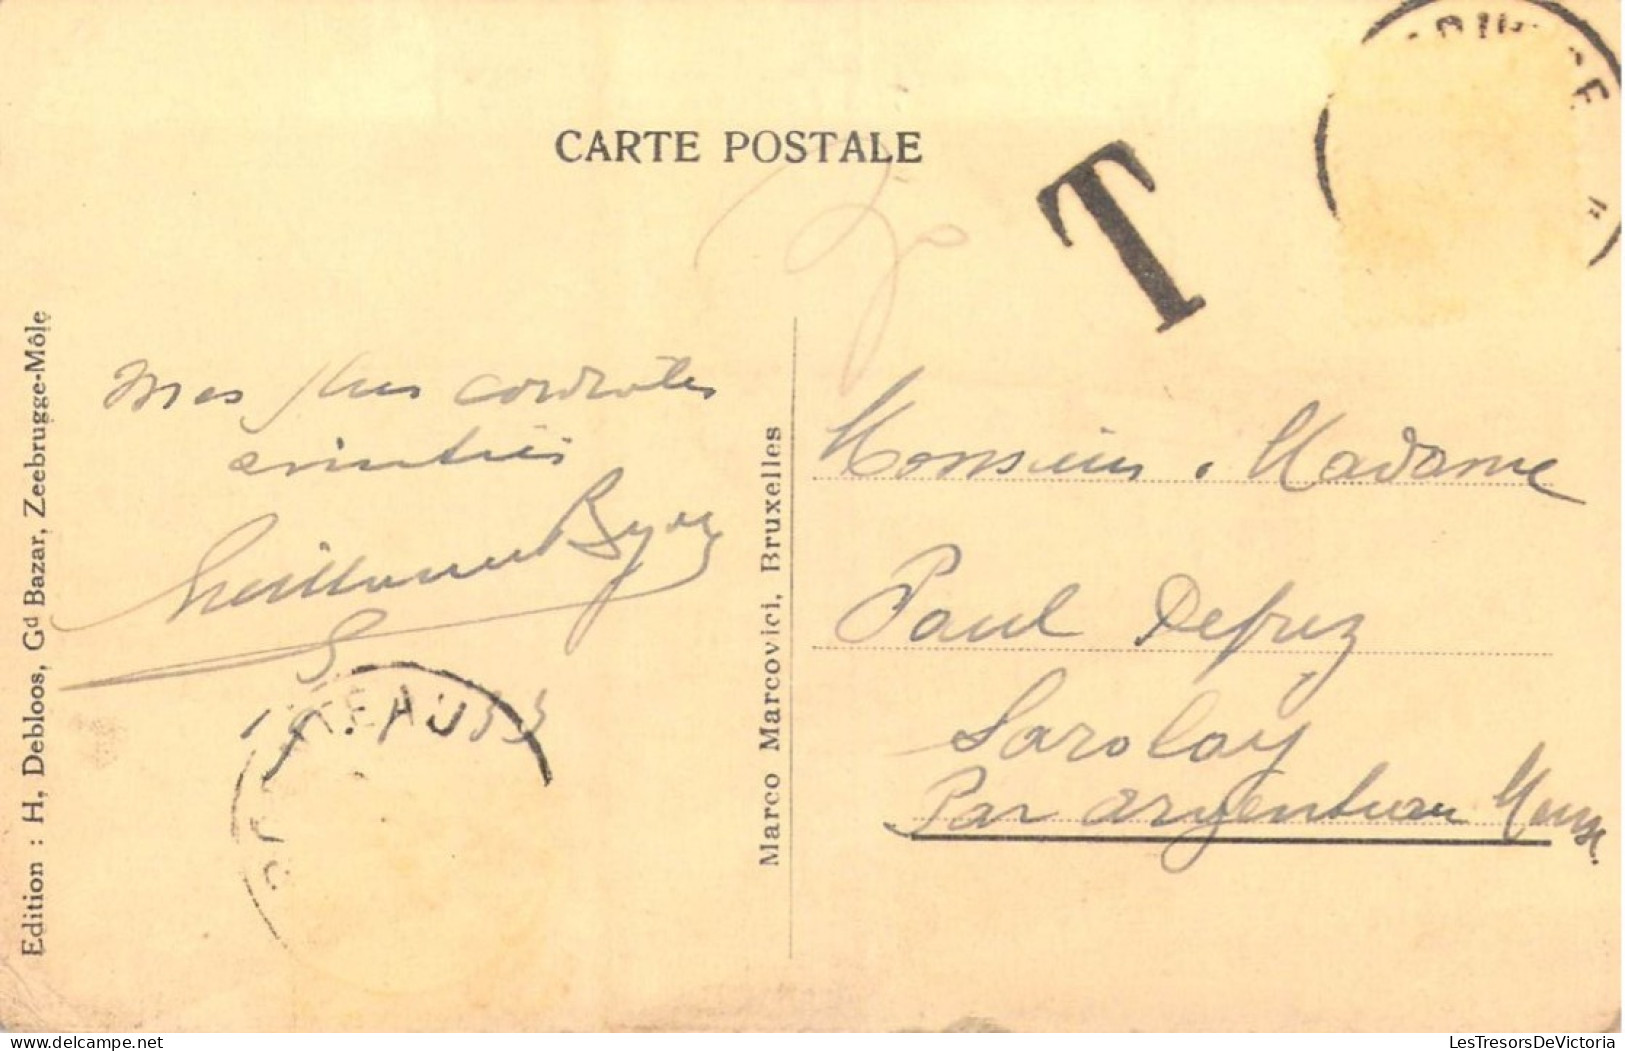 CARTE POSTALE
T
Edition : H. Debloos, Gd Bazar, Zeebrugge-Môle
Mes plus cordiales
amitiés
Guillaume
Marco Marcovici, Bruxelles
Monsieur Madame
Paul Defrez
Sarolay
Par Argenteau Meuse.
delcampe.net
LesTresorsDeVictoria